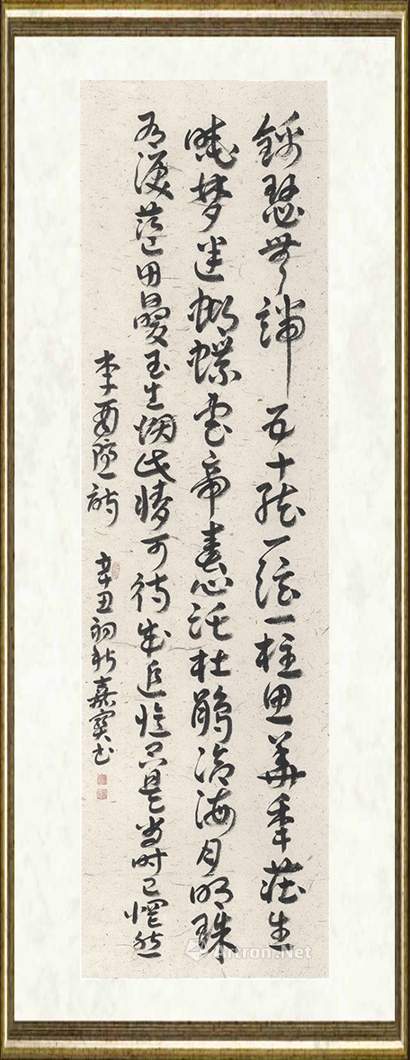 錦瑟無端五十絃一絃一柱思華年莊生
曉夢迷蝴蝶望帝春心託杜鵑滄海月明珠
有淚藍田日暖玉生烟此情可待成追憶只是當時已惘然
李商隱詩 辛丑初秋嘉寶書
Artron.Net